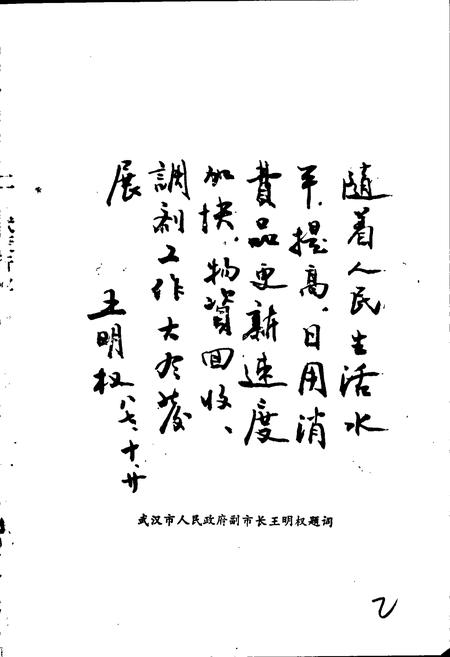 随着人民生活水
平提高、日用消
费品更新速度
加快、物资回收、
调剂工作大有发
展
王明权 八七、十、廿
武汉市人民政府副市长王明权题词
乙